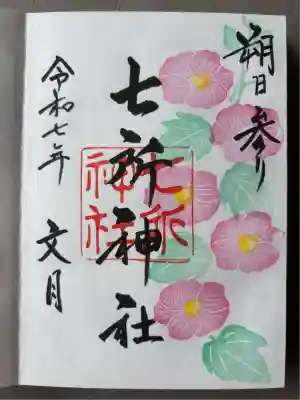 朔日参り
七所神社
七所
神社
令和七年
文月